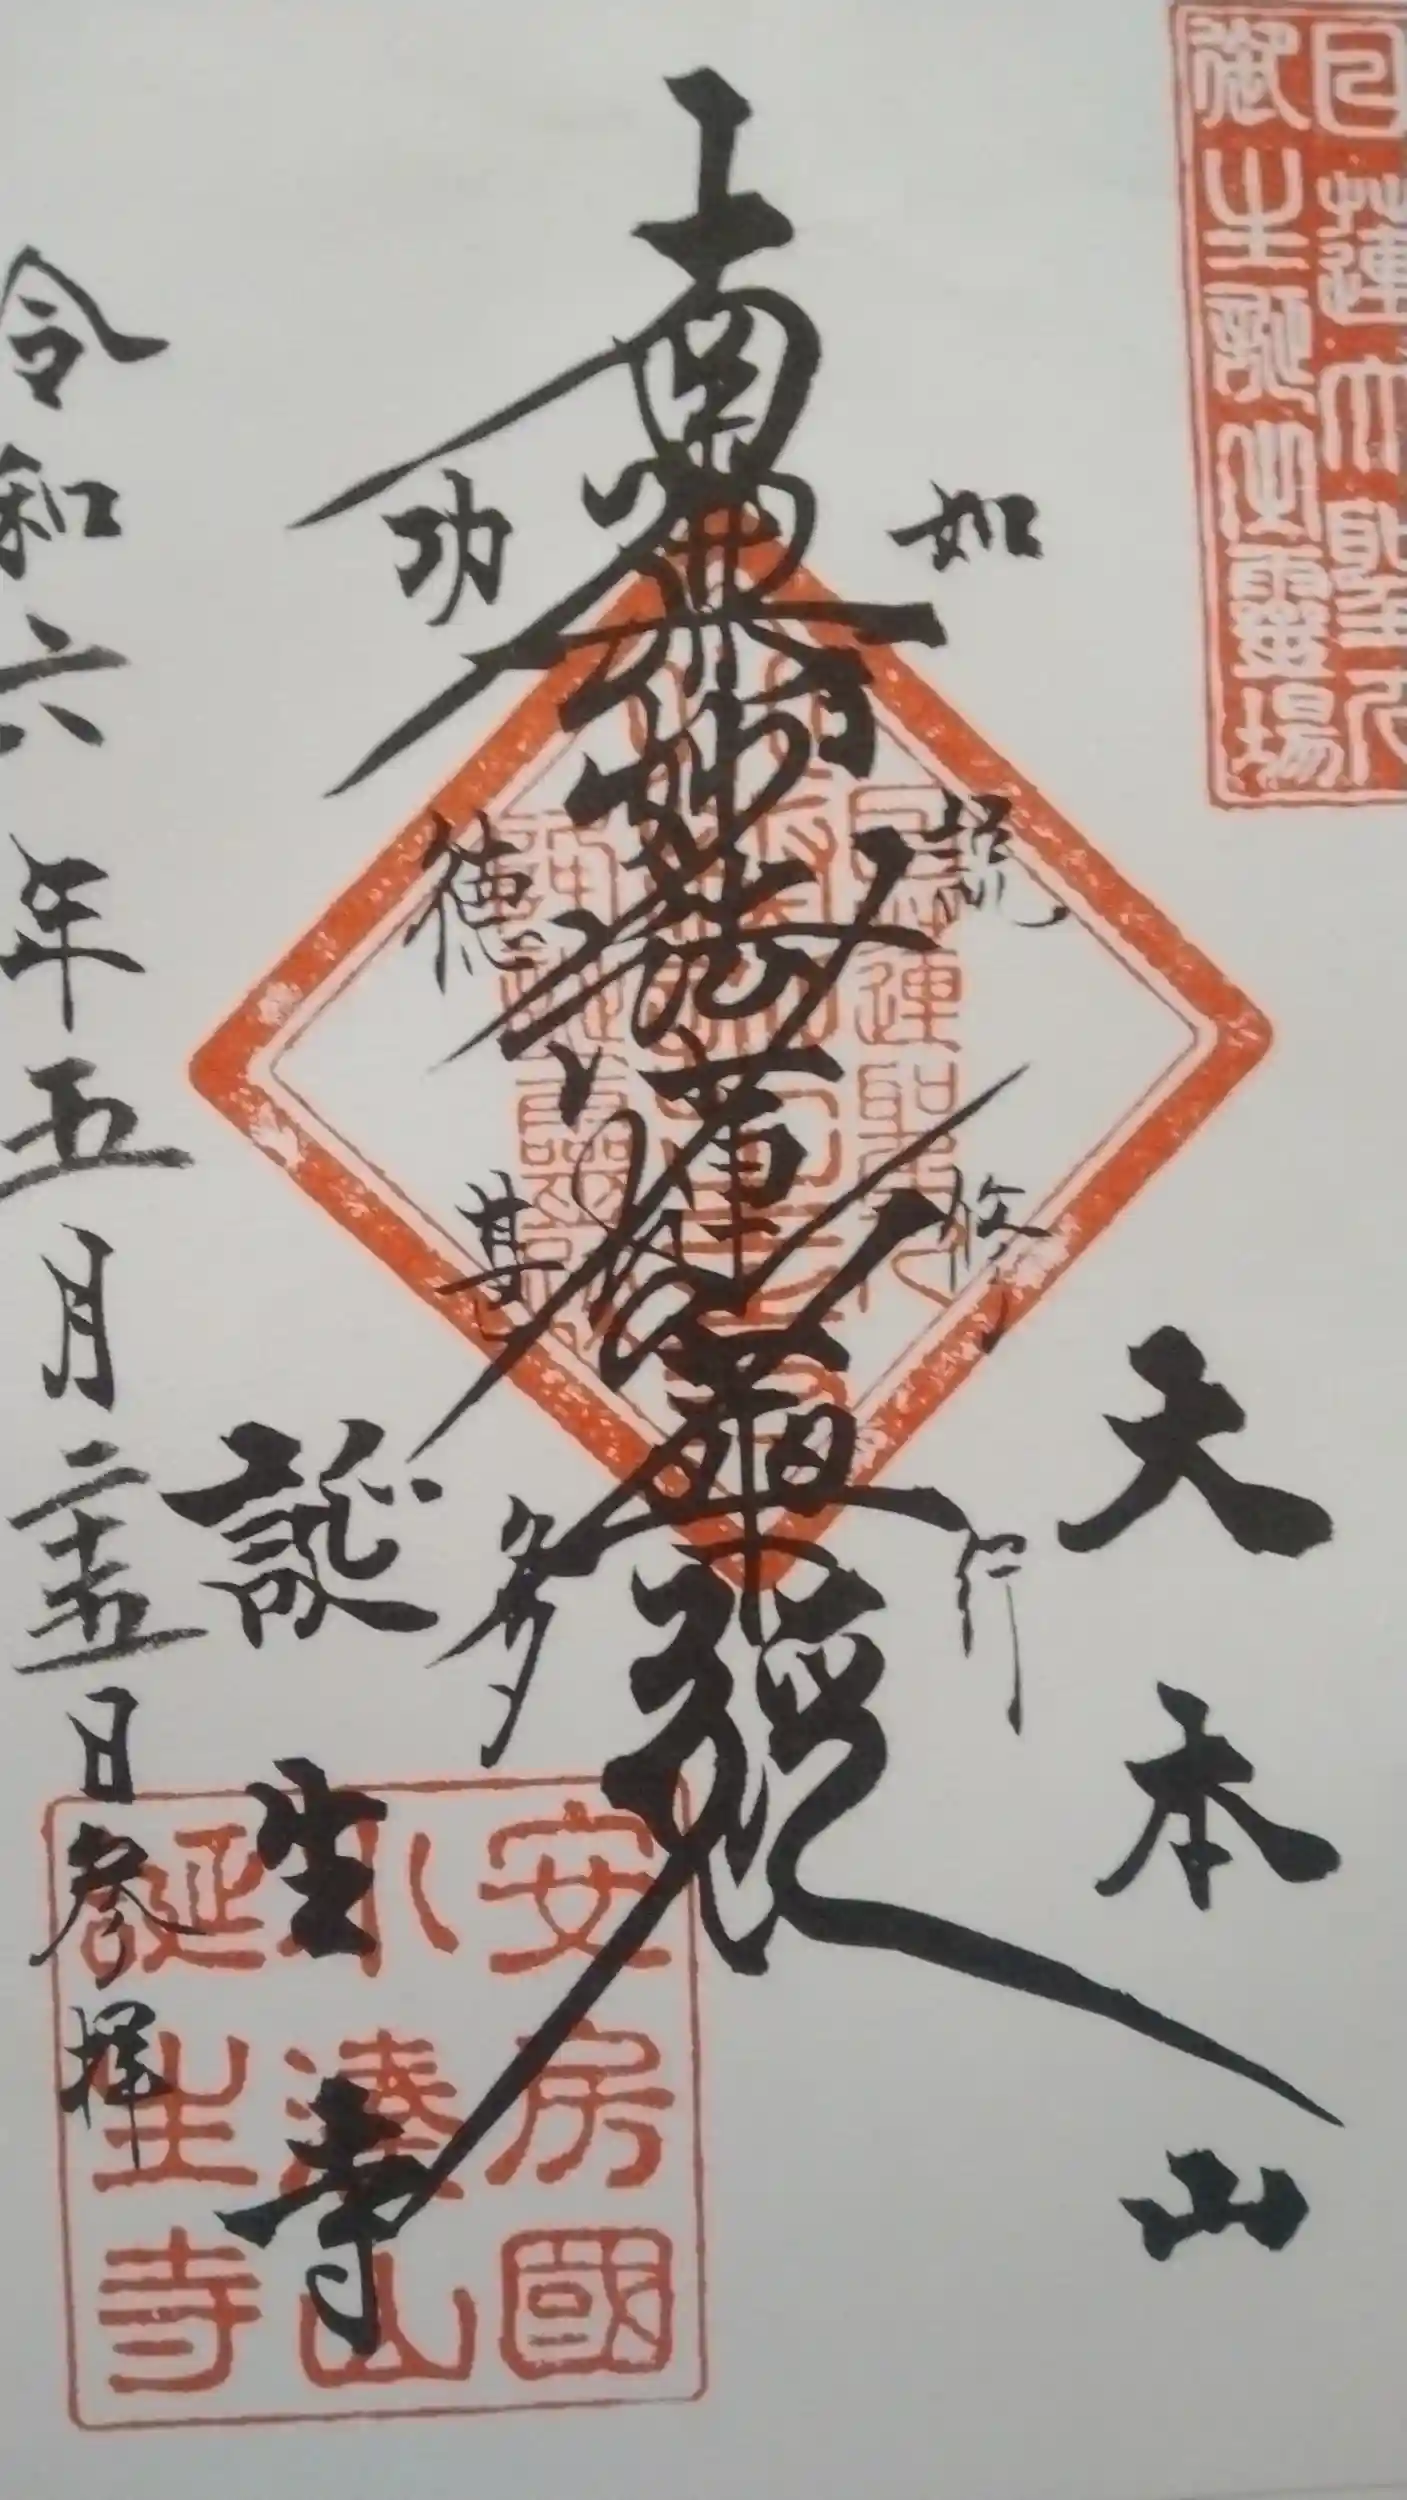 日蓮大聖人
御生誕之霊場
大本山
如説修行
南無妙法蓮華経
功徳甚多
誕生寺
安房國
小湊山
誕生寺
令和六年五月二十五日参拝